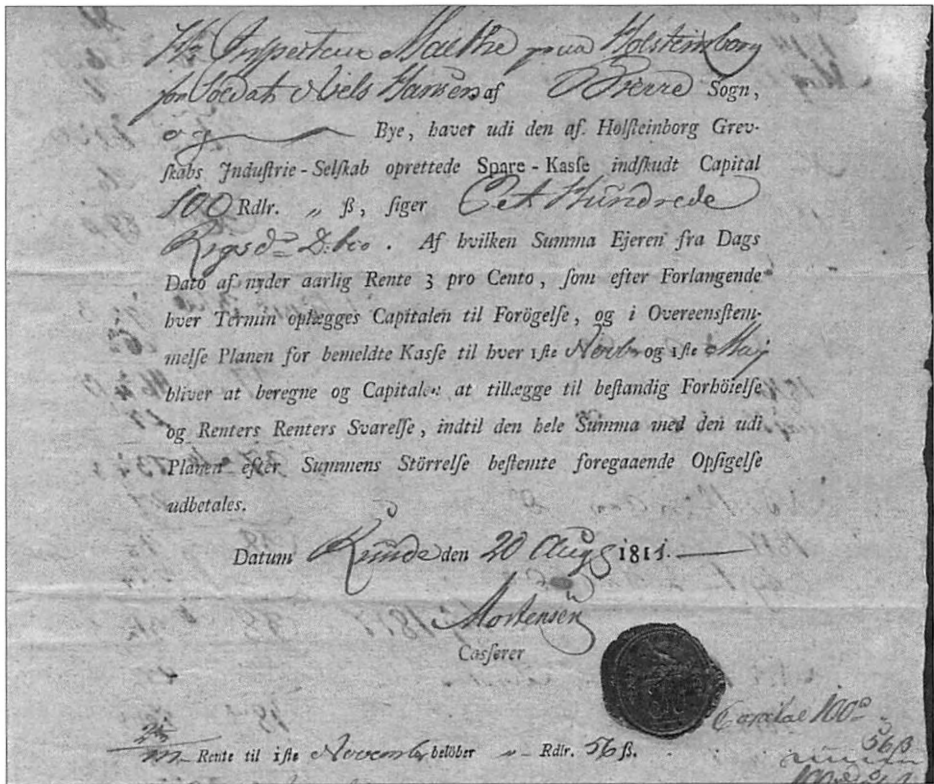 Hr Inspecteur Malthe paa Holsteinborg
for Soldat Niels Hansen af Sierre Sogn,
og Bye, havet udi den af Holsteinborg Grev-
skabs Industrie-Selskab oprettede Spare-Kasse indskudt Capital
100 Rdlr. „ ß, siger Eet Hundrede
Rigsdr D: . Af hvilken Summa Ejeren fra Dags
Dato af nyder aarlig Rente 3 pro Cento, som efter Forlangende
hver Termin oplægges Capitalen til Forögelse, og i Overeenstem-
melse Planen for bemeldte Kasse til hver 1ste Novbr og 1ste Maj
bliver at beregne og Capitalen at tillægge til bestandig Forhöielse
og Renters Renters Svarelse, indtil den hele Summa med den udi
Planen efter Summens Störrelse bestemte foregaaende Opsigelse
udbetales.
Datum Rude den 20 Aug 1811.
Mortensen
Casserer
Capital 100
56ß
Rente til 1ste November belöber „ Rdlr. 56 ß.